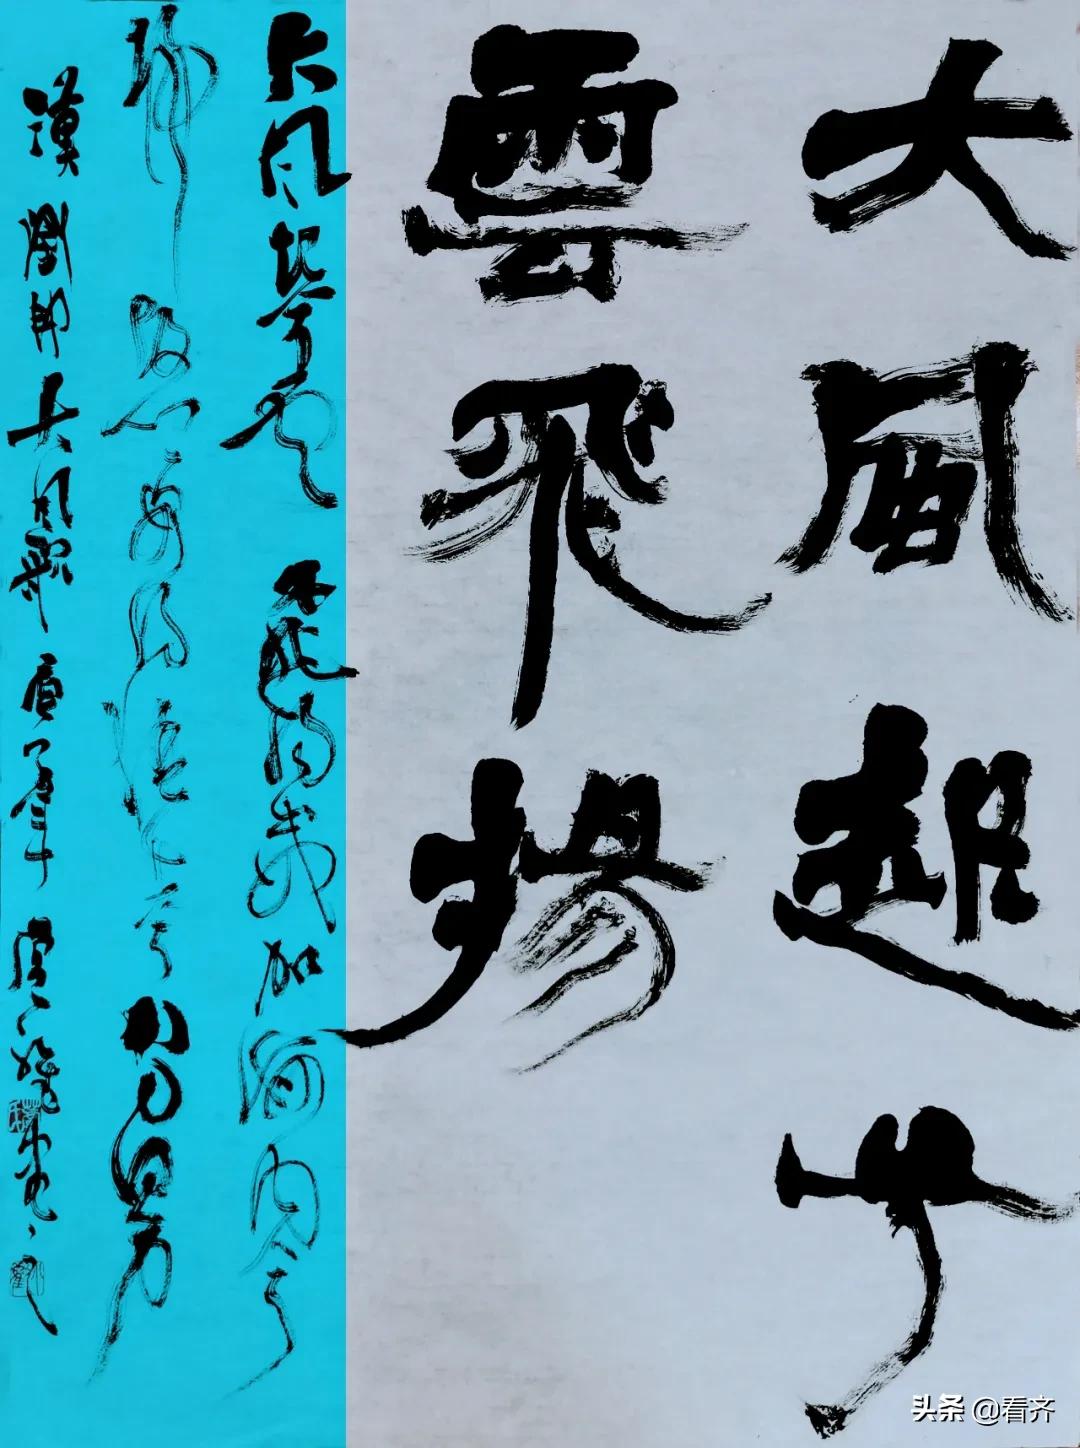 大風起兮
雲飛揚
大风起兮云飞扬威加海内兮
归故乡安得猛士兮守四方
漢劉邦大风歌庚子年
头条 @看齐